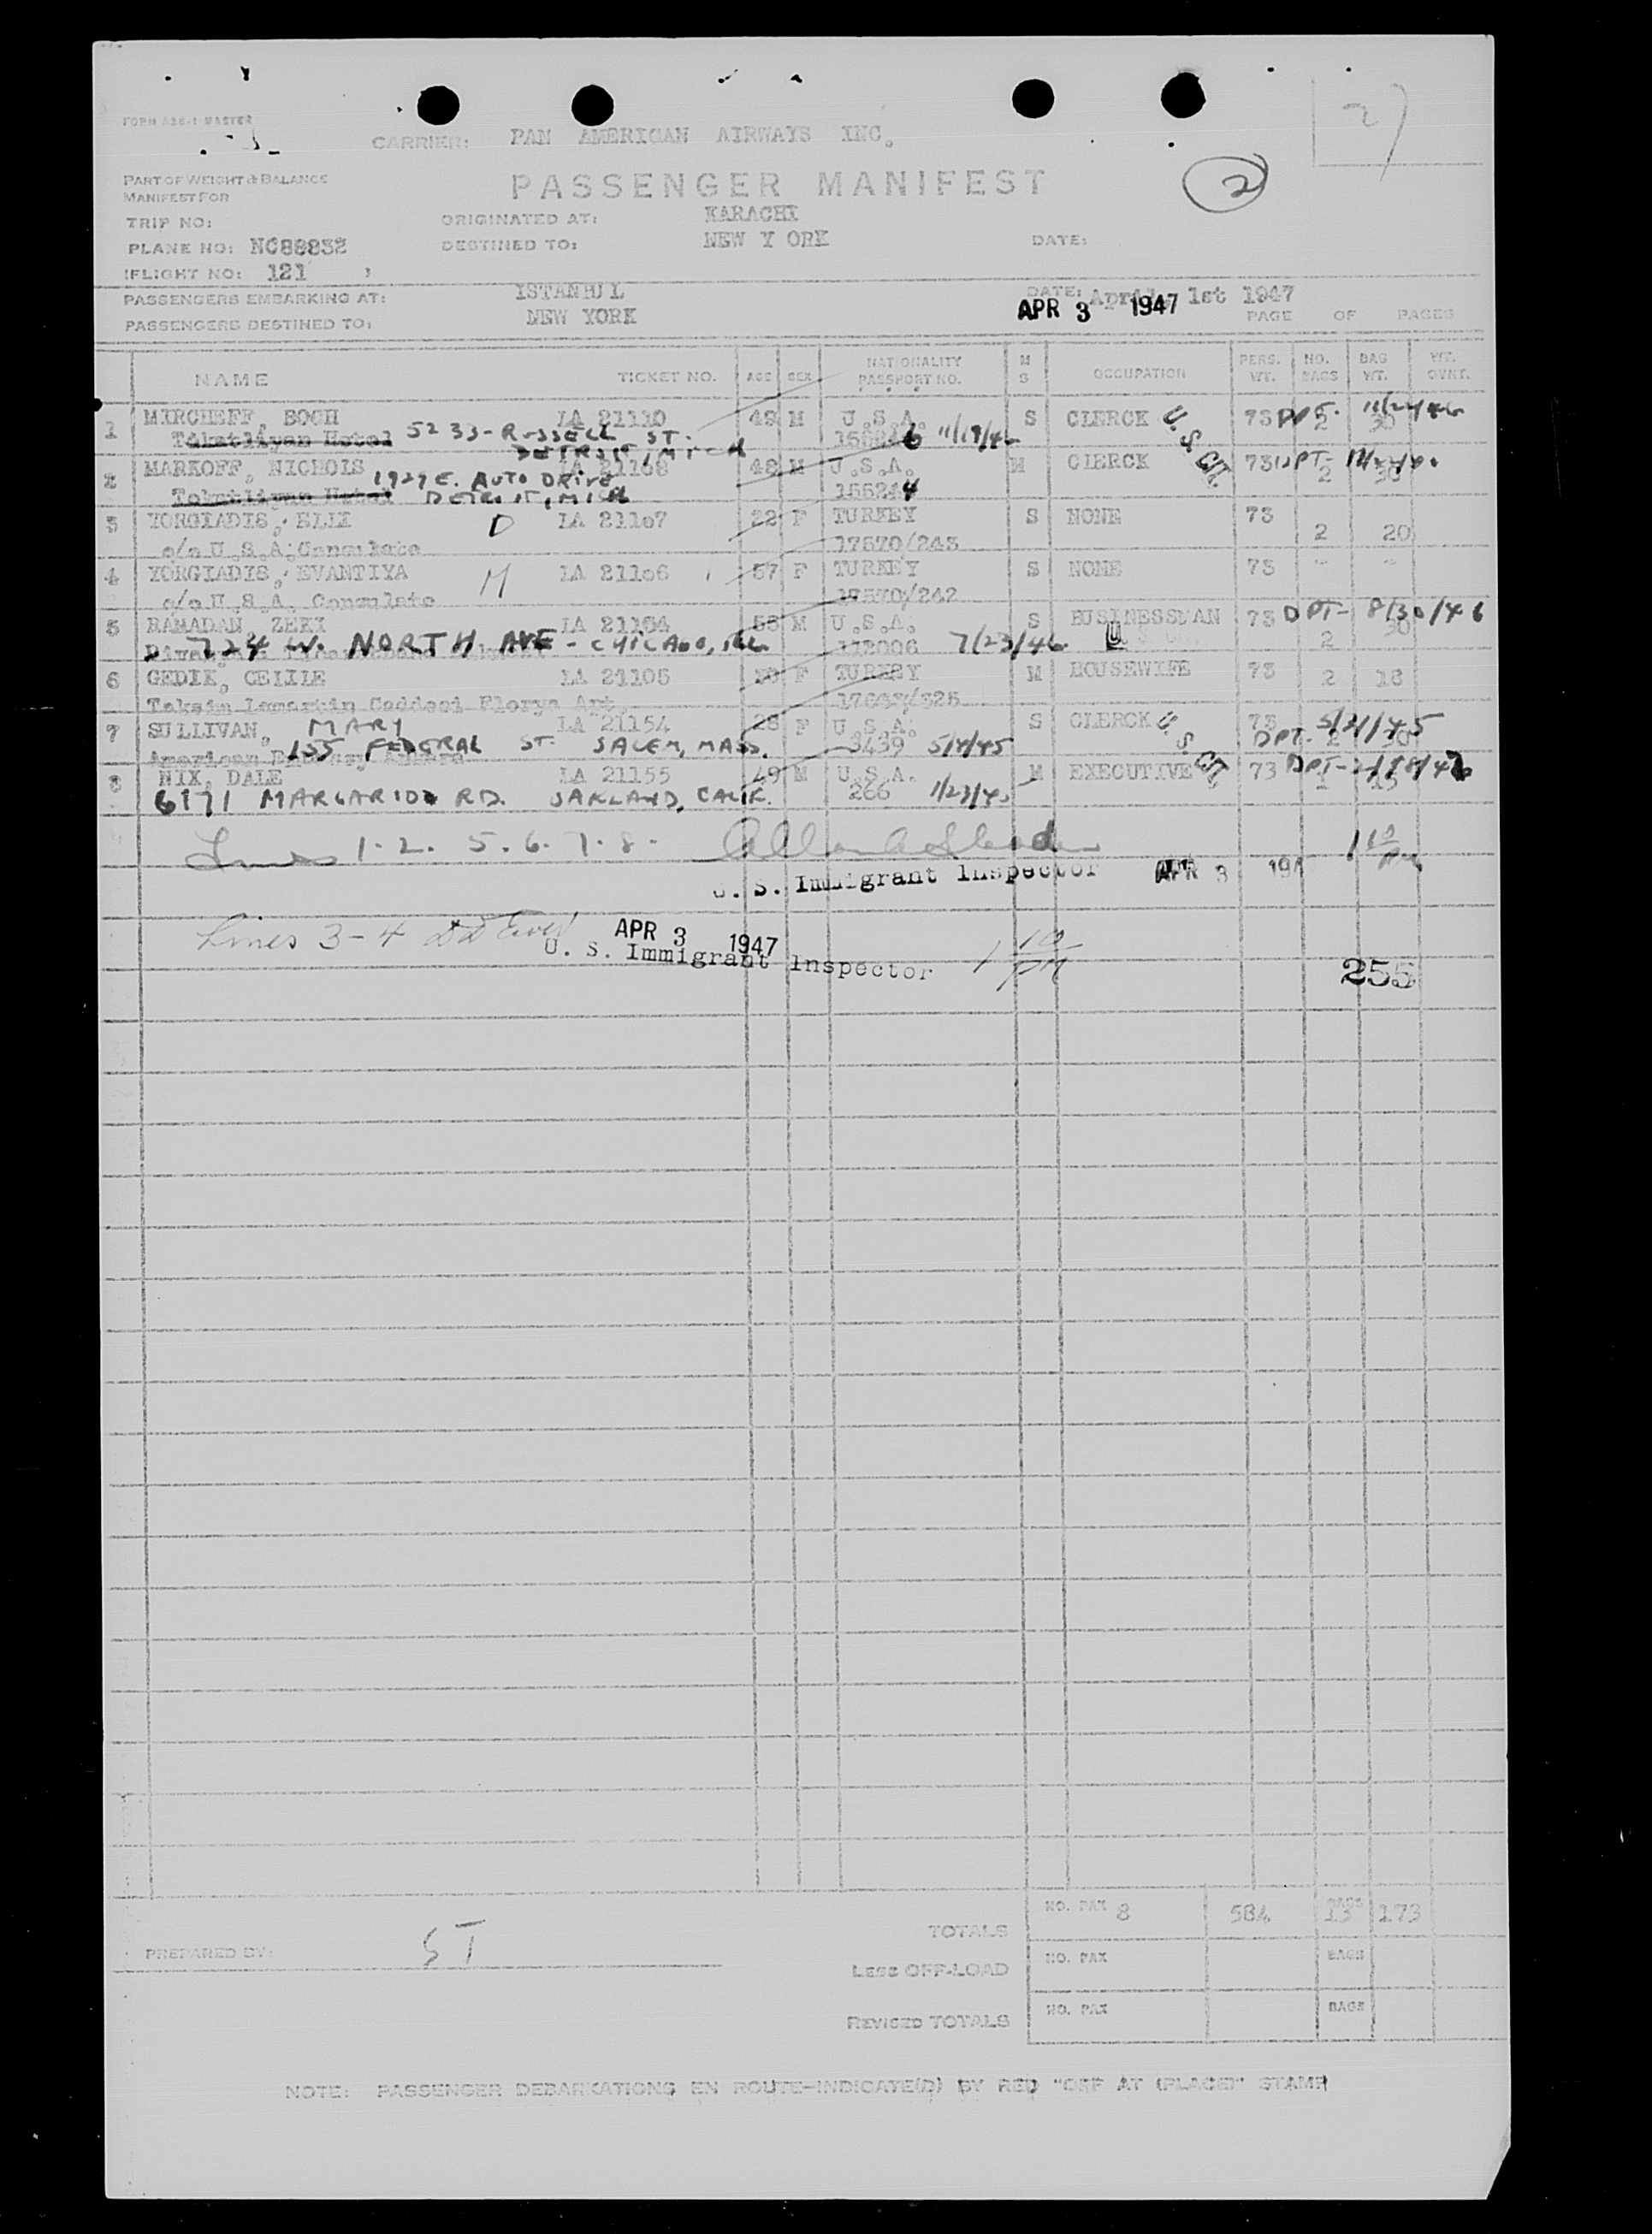 2
FORM 536-1 MASTER
CARRIER: PAN AMERICAN AIRWAYS INC.
PART OF WEIGHT & BALANCE
MANIFEST FOR
PASSENGER MANIFEST
2
TRIP NO:
ORIGINATED AT: KARACHI
PLANE NO: NC88832
DESTINED TO: NEW Y ORK
DATE:
FLIGHT NO: 121
PASSENGERS EMBARKING AT: ISTANBUL
DATE: April, 1st 1947
APR 3 1947
PASSENGERS DESTINED TO: NEW YORK
PAGE OF PAGES
NAME TICKET NO. AGE SEX NATIONALITY PASSPORT NO. M S OCCUPATION PERS. WT. NO. BAGS BAG WT. WT. OVNT.
1 MIRCHEFF, BOCH IA 21110 49 M U.S.A. S CLERCK U.S. CIT. 73 DPT- 2 30
Tokatliyan Hotel 5233- RUSSELL ST. 11/19/46
DETROIT, MICH
2 MARKOFF, NICHOIS IA 21168 48 M U.S.A. M CIERCK 73 DPT- 2 30
Tokatliyan Hotel 1929 E. AUTO DRIVE 155244
DETROIT, MICH
3 YORGIADIS, ELLI D IA 21107 22 F TURKEY S NONE 73 2 20
c/o U.S.A. Consulate 17570/243
4 YORGIADIS, EVANTIYA M IA 21106 57 F TURKEY S NONE 73 " "
c/o U.S.A. Consulate 17570/242
5 RAMADAN, ZEKI IA 21164 55 M U.S.A. S BUSINESSMAN 73 DPT- 8/30/46 2 30
724 W. NORTH AVE - CHICAGO, ILL 7/23/46
6 GEDIK, CELILE IA 21105 F TURKEY M HOUSEWIFE 73 2 18
Taksim Lamartin Caddesi Florya Apt.
7 SULLIVAN, MARY IA 21154 28 F U.S.A. S CLERCK U.S. CIT. 73 DPT- 5/21/45 2 30
American Embassy Ankara 155 FEDERAL ST. SALEM, MASS. 3439 5/4/45
8 NIX, DALE IA 21155 49 M U.S.A. M EXECUTIVE 73 DPT- 1 15
6171 MARGARIDO RD. OAKLAND, CALIF. 266
Lines 1. 2. 5. 6. 7. 8.
U. S. Immigrant Inspector APR 3 194 1 10 PM
Lines 3-4 APR 3 1947
U. S. Immigrant Inspector 1 10 PM
255
TOTALS NO. PAX 8 584 BAGS 13 173
PREPARED BY: ST
LESS OFF-LOAD NO. PAX BAGS
REVISED TOTALS NO. PAX BAGS
NOTE: PASSENGER DEBARKATIONS EN ROUTE-INDICATE(D) BY RED "OFF AT (PLACE)" STAMP